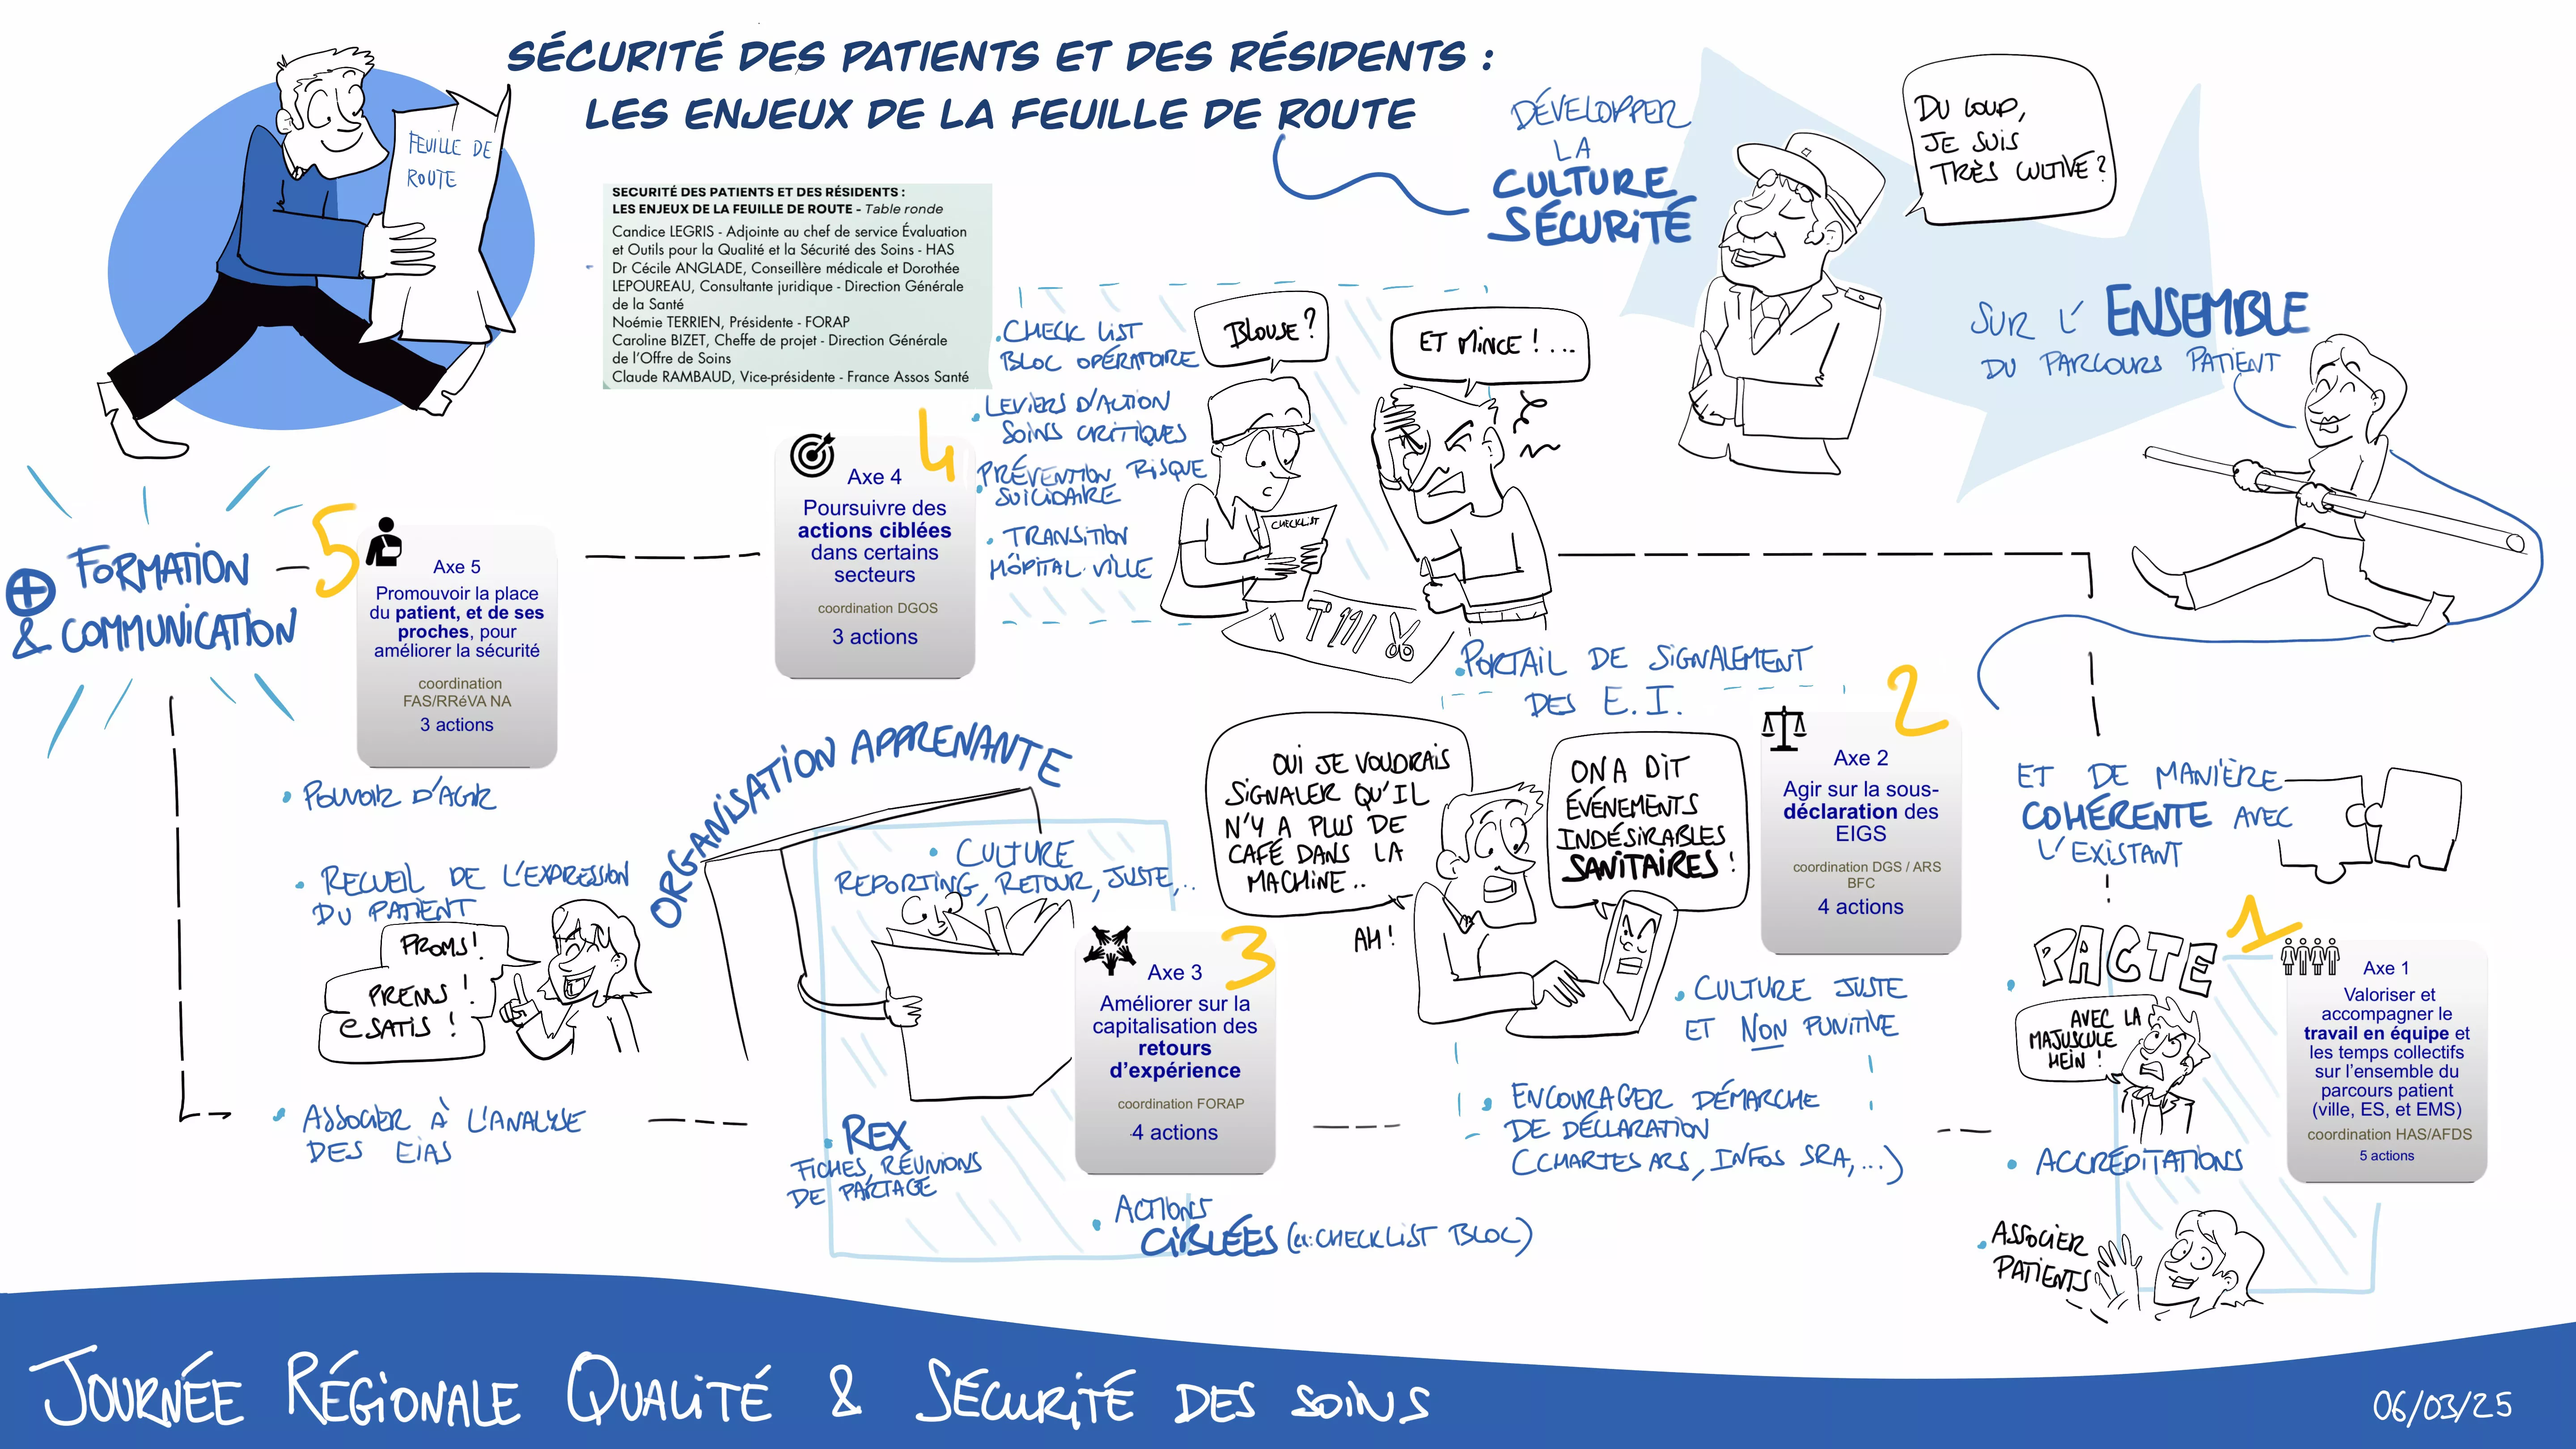 SÉCURITÉ DES PATIENTS ET DES RÉSIDENTS :
LES ENJEUX DE LA FEUILLE DE ROUTE
FEUILLE DE
ROUTE
SECURITÉ DES PATIENTS ET DES RÉSIDENTS :
LES ENJEUX DE LA FEUILLE DE ROUTE - Table ronde
Candice LEGRIS - Adjointe au chef de service Évaluation
et Outils pour la Qualité et la Sécurité des Soins - HAS
Dr Cécile ANGLADE, Conseillère médicale et Dorothée
LEPOUREAU, Consultante juridique - Direction Générale
de la Santé
Noémie TERRIEN, Présidente - FORAP
Caroline BIZET, Cheffe de projet - Direction Générale
de l'Offre de Soins
Claude RAMBAUD, Vice-présidente - France Assos Santé
DÉVELOPPER
LA
CULTURE
SÉCURITÉ
DU COUP,
JE SUIS
TRÈS CULTIVÉ ?
SUR L'ENSEMBLE
DU PARCOURS PATIENT
ET DE MANIÈRE
COHÉRENTE AVEC
L'EXISTANT
1
Axe 1
Valoriser et
accompagner le
travail en équipe et
les temps collectifs
sur l'ensemble du
parcours patient
(ville, ES, et EMS)
coordination HAS/AFDS
5 actions
• PACTE
AVEC LA
MAJUSCULE
HEIN !
• ACCRÉDITATIONS
• ASSOCIER
PATIENTS
2
Axe 2
Agir sur la sous-
déclaration des
EIGS
coordination DGS / ARS
BFC
4 actions
• PORTAIL DE SIGNALEMENT
DES E.I.
OUI JE VOUDRAIS
SIGNALER QU'IL
N'Y A PLUS DE
CAFÉ DANS LA
MACHINE..
ON A DIT
ÉVÉNEMENTS
INDÉSIRABLES
SANITAIRES !
AH !
• CULTURE JUSTE
ET NON PUNITIVE
• ENCOURAGER DÉMARCHE
DE DÉCLARATION
(CHARTES ARS, INFOS SRA, ...)
3
Axe 3
Améliorer sur la
capitalisation des
retours
d'expérience
coordination FORAP
4 actions
ORGANISATION APPRENANTE
• CULTURE
REPORTING, RETOUR, JUSTE,..
• REX
FICHES, RÉUNIONS
DE PARTAGE
• ACTIONS
CIBLÉES (ex: CHECKLIST BLOC)
4
Axe 4
Poursuivre des
actions ciblées
dans certains
secteurs
coordination DGOS
3 actions
• CHECK LIST
BLOC OPÉRATOIRE
• LEVIERS D'ACTION
SOINS CRITIQUES
• PRÉVENTION RISQUE
SUICIDAIRE
• TRANSITION
HÔPITAL VILLE
BLOUSE ?
ET MINCE ! ...
CHECKLIST
5
Axe 5
Promouvoir la place
du patient, et de ses
proches, pour
améliorer la sécurité
coordination
FAS/RRéVA NA
3 actions
⊕ FORMATION
& COMMUNICATION
• POUVOIR D'AGIR
• RECUEIL DE L'EXPRESSION
DU PATIENT
PROMS !
PREMS !
e SATIS !
• ASSOCIER À L'ANALYSE
DES EIAS
JOURNÉE RÉGIONALE QUALITÉ & SÉCURITÉ DES SOINS
06/03/25